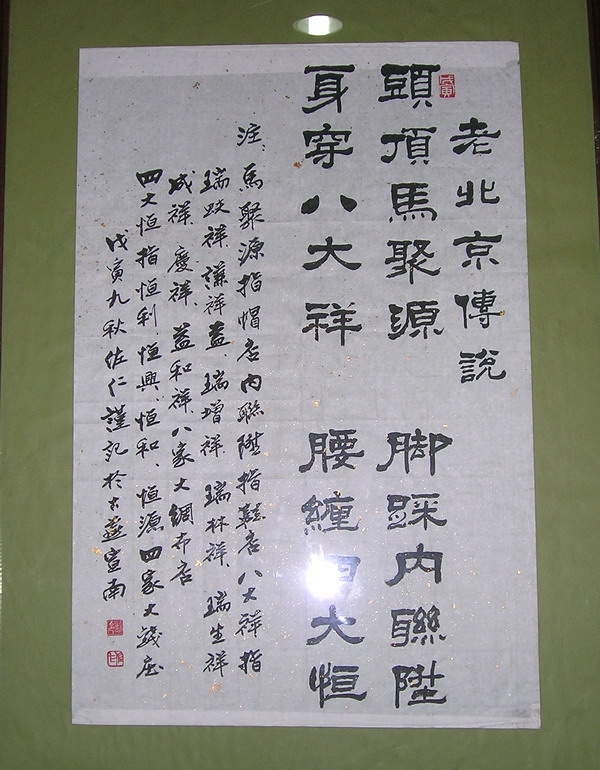 老北京傳說
頭頂馬聚源 脚踩内聯陞
身穿八大祥 腰纏四大恒
注、馬聚源指帽店内聯陞指鞋店八大祥指
瑞蚨祥、謙祥益、瑞增祥、瑞林祥、瑞生祥
成祥、慶祥、益和祥、八家大綢布店
四大恒指恒利、恒興、恒和、恒源四家大錢庄
戊寅九秋佐仁謹記於古燕宣南
戊寅